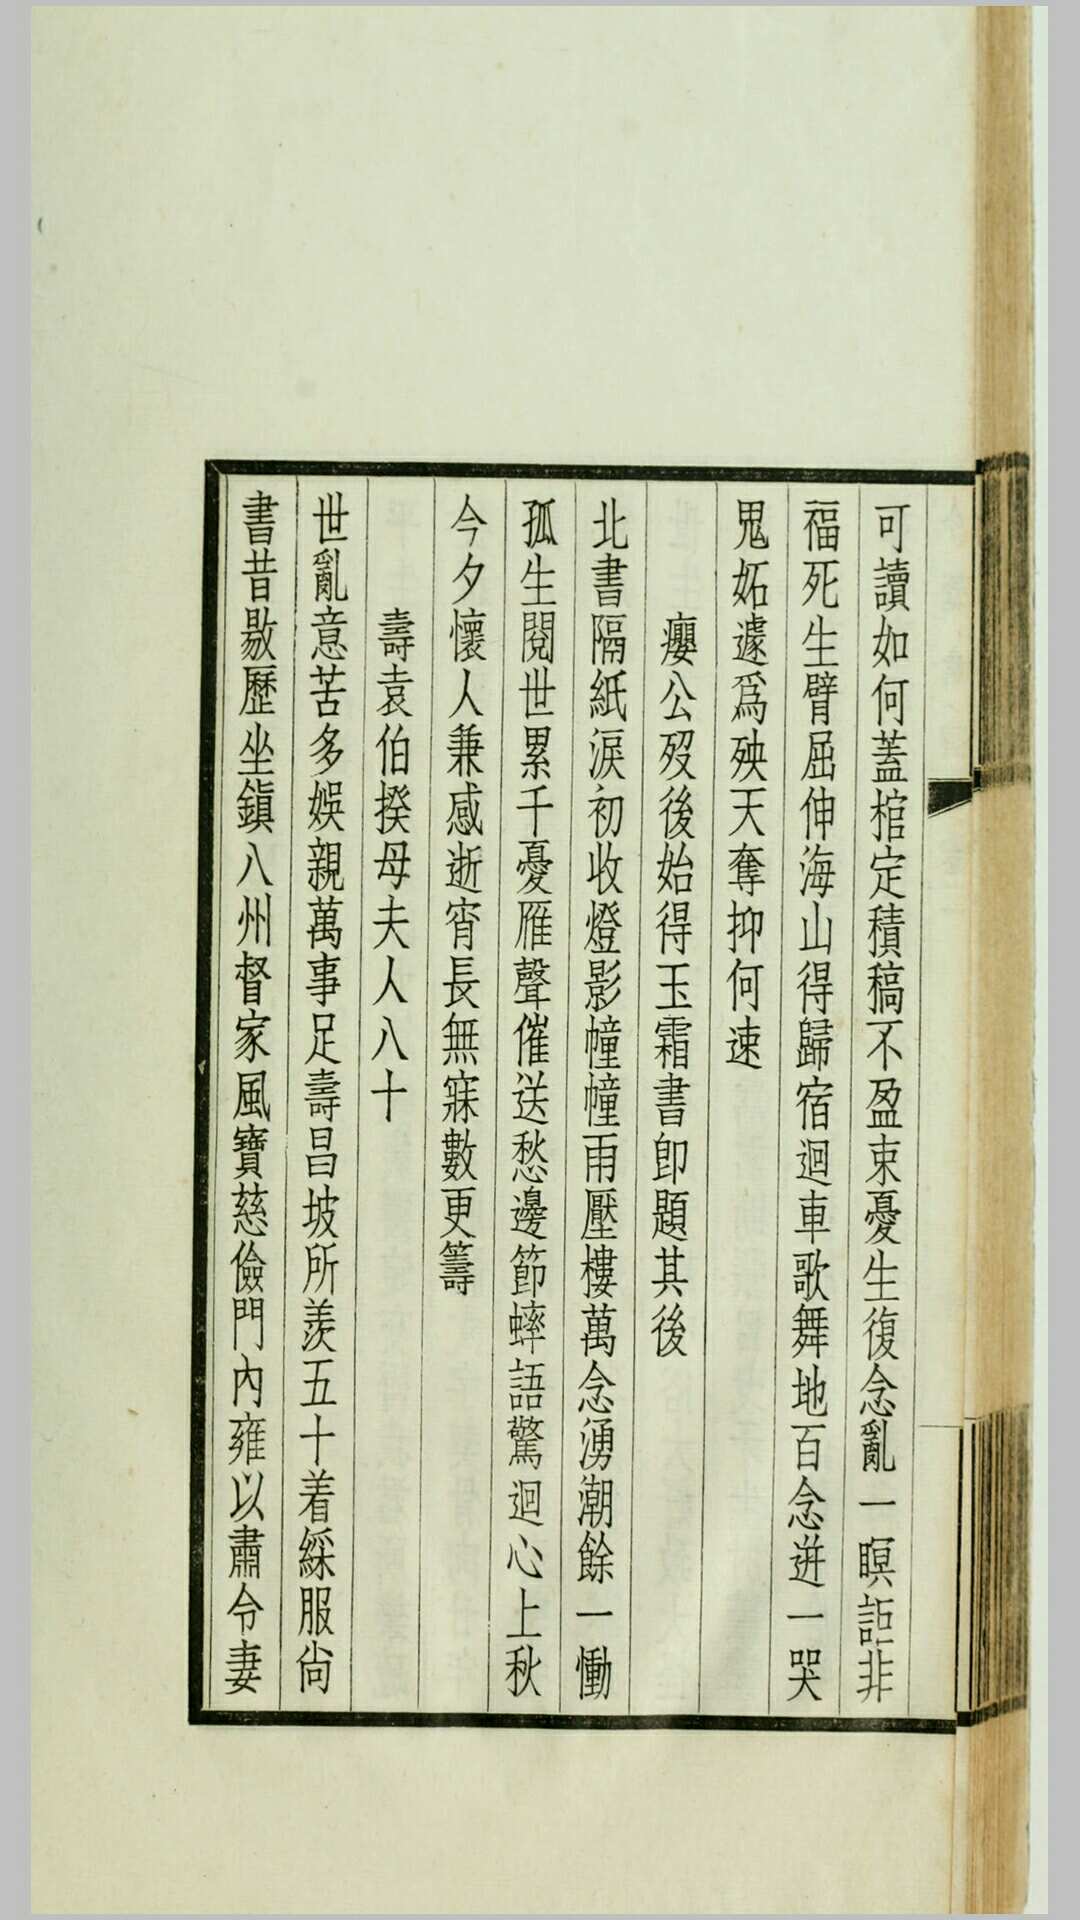 可讀如何蓋棺定積稿不盈束憂生復念亂一瞑詎非
福死生臂屈伸海山得歸宿迴車歌舞地百念迸一哭
鬼妬遽爲殃天奪抑何速
癭公歿後始得玉霜書卽題其後
北書隔紙淚初收燈影幢幢雨壓樓萬念湧潮餘一慟
孤生閱世累千憂雁聲催送愁邊節蟀語驚迴心上秋
今夕懷人兼感逝宵長無寐數更籌
壽袁伯揆母夫人八十
世亂意苦多娛親萬事足壽昌坡所羨五十着綵服尙
書昔敭歷坐鎭八州督家風寶慈儉門內雍以肅令妻